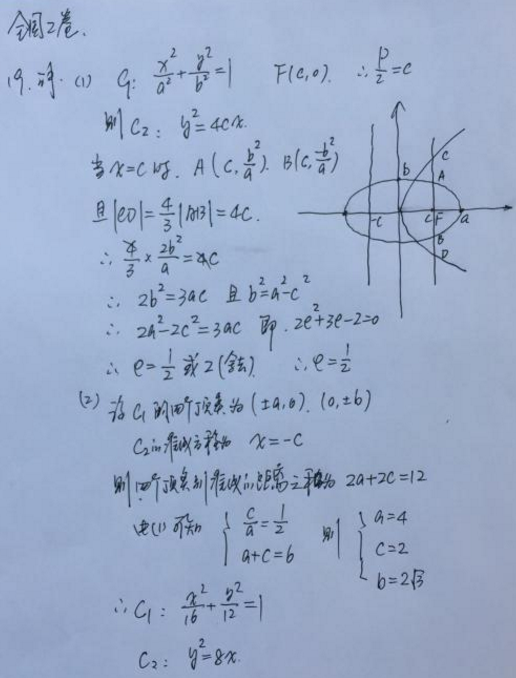 全国2卷.
19. 解. (1) C₁: x²/a² + y²/b² = 1 F(c,0). ∴ p/2 = c
则 C₂: y² = 4cx.
当 x=c 时. A(c, b²/a). B(c, b²/a)
且 |CD| = 4/3 |AB| = 4c.
∴ 4/3 × 2b²/a = 4c
∴ 2b² = 3ac 且 b² = a² - c²
∴ 2a² - 2c² = 3ac 即. 2e² + 3e - 2 = 0
∴ e = 1/2 或 2 (舍去). ∴ e = 1/2
b
C
A
-c
c
F
a
B
D
(2) 设 C₁ 的四个顶点为 (±a, 0). (0, ±b)
C₂的准线方程为 x = -c
则四个顶点到准线的距离之和为 2a + 2c = 12
由(1)可知 { c/a = 1/2 a + c = 6 则 { a = 4 c = 2 b = 2√3
∴ C₁: x²/16 + y²/12 = 1
C₂: y² = 8x.